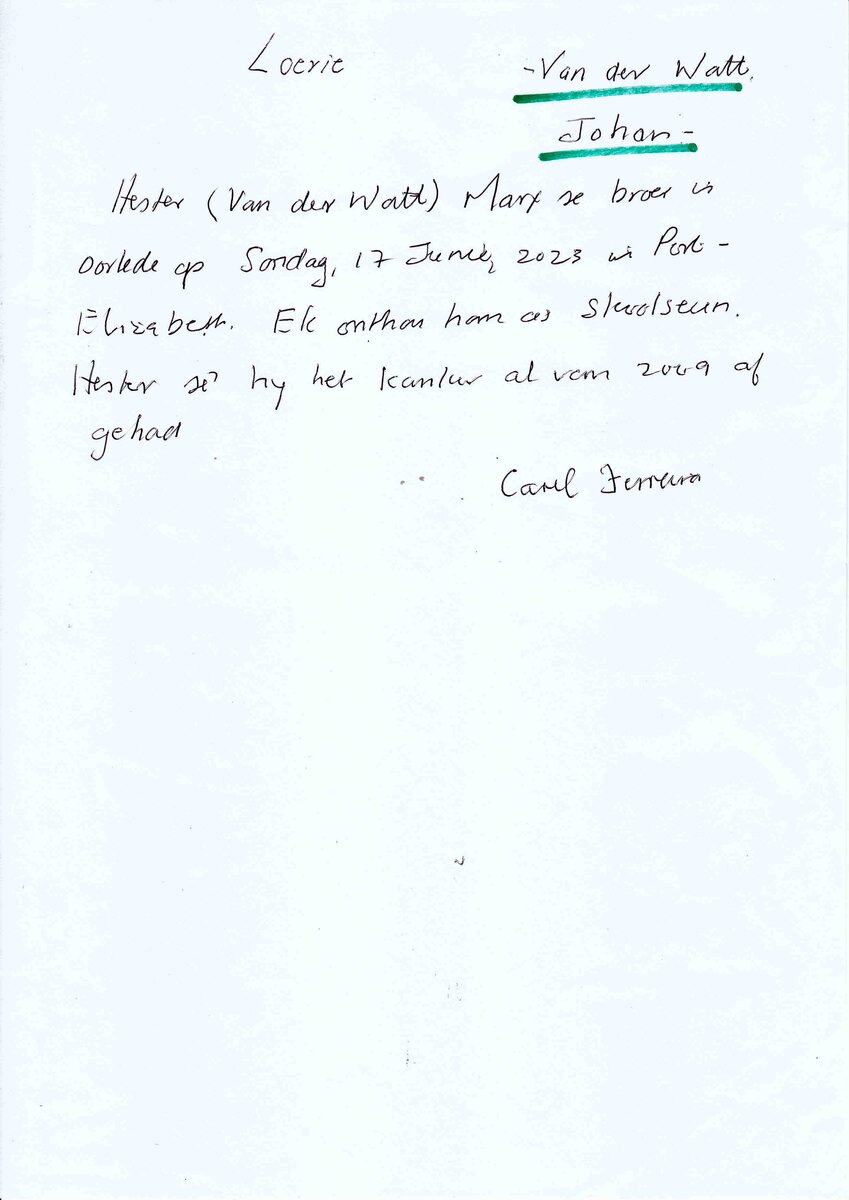 Loerie
-Van der Watt.
Johan-
Hester (Van der Watt) Marx se broer is
oorlede op Sondag, 17 Junie, 2023 in Port-
Elizabeth. Ek onthou hom as skoolseun.
Hester sê hy het kanker al van 2009 af
gehad
Carel Ferreira